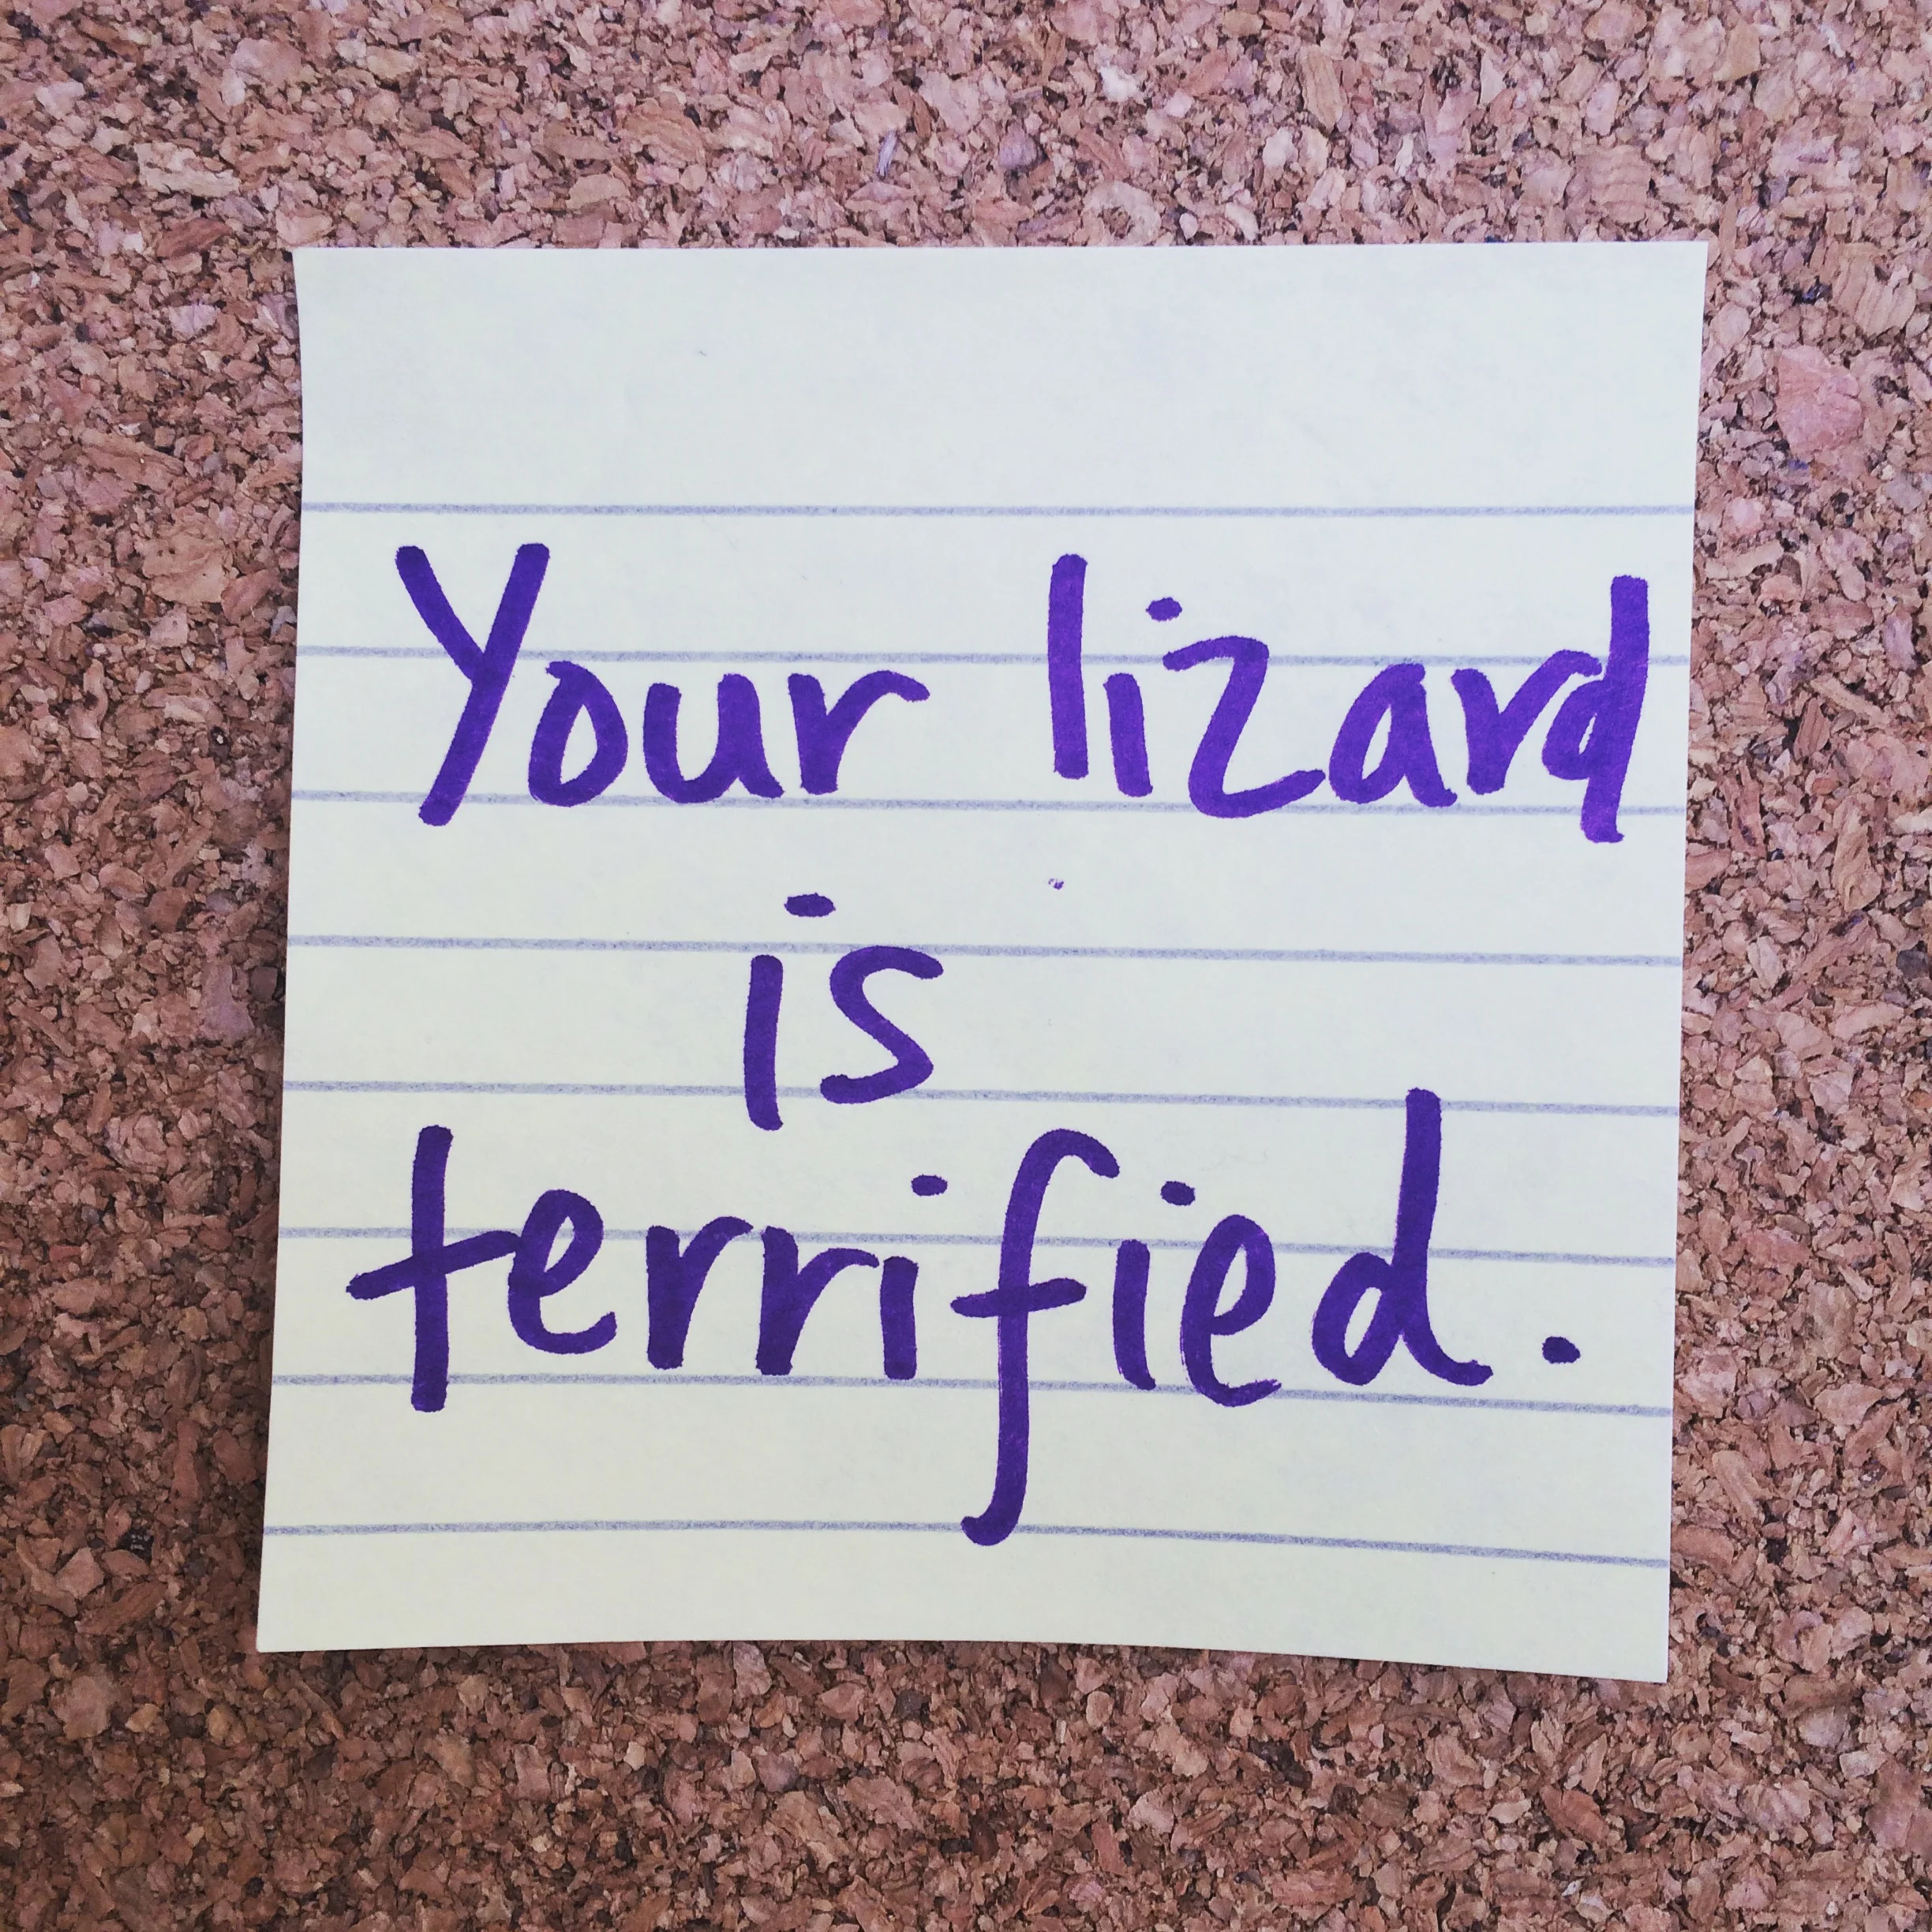 Your lizard
is
terrified.